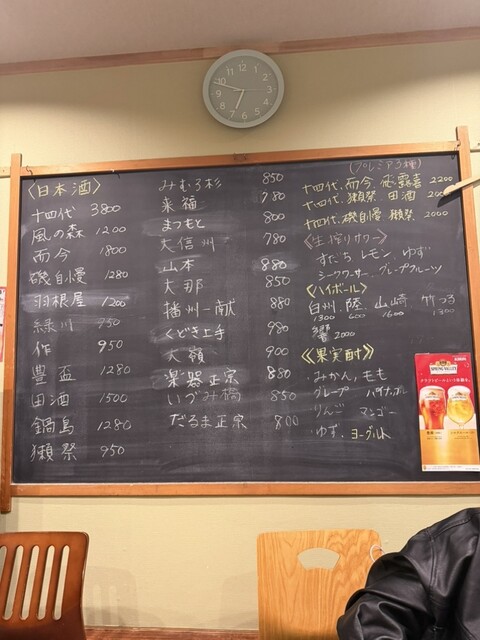 〈日本酒〉
十四代 3800
風の森 1200
而今 1800
磯自慢 1280
羽根屋 1200
緑川 750
作 950
豊盃 1280
田酒 1500
鍋島 1280
獺祭 950
みむろ杉 850
来福 780
まつもと 800
大信州 780
山本 880
大那 850
播州一献 880
くどき上手 980
大嶺 900
楽器正宗 880
いづみ橋 850
だるま正宗 800
(プレミア3種)
十四代、而今、飛露喜 2200
十四代、獺祭 田酒 2000
十四代、磯自慢 獺祭 2000
〈生搾りサワー〉
すだち レモン、ゆず
シークワーサー、グレープフルーツ
〈ハイボール〉
白州、陸、山崎 竹つる
1300 600 1600 1300
響 2000
《果実酎》
・みかん、もも
グレープ パイナップル
りんご マンゴー
・ゆず、ヨーグルト
KIRIN
SPRING VALLEY
12
11
10
9
8
7
6
5
4
3
2
1